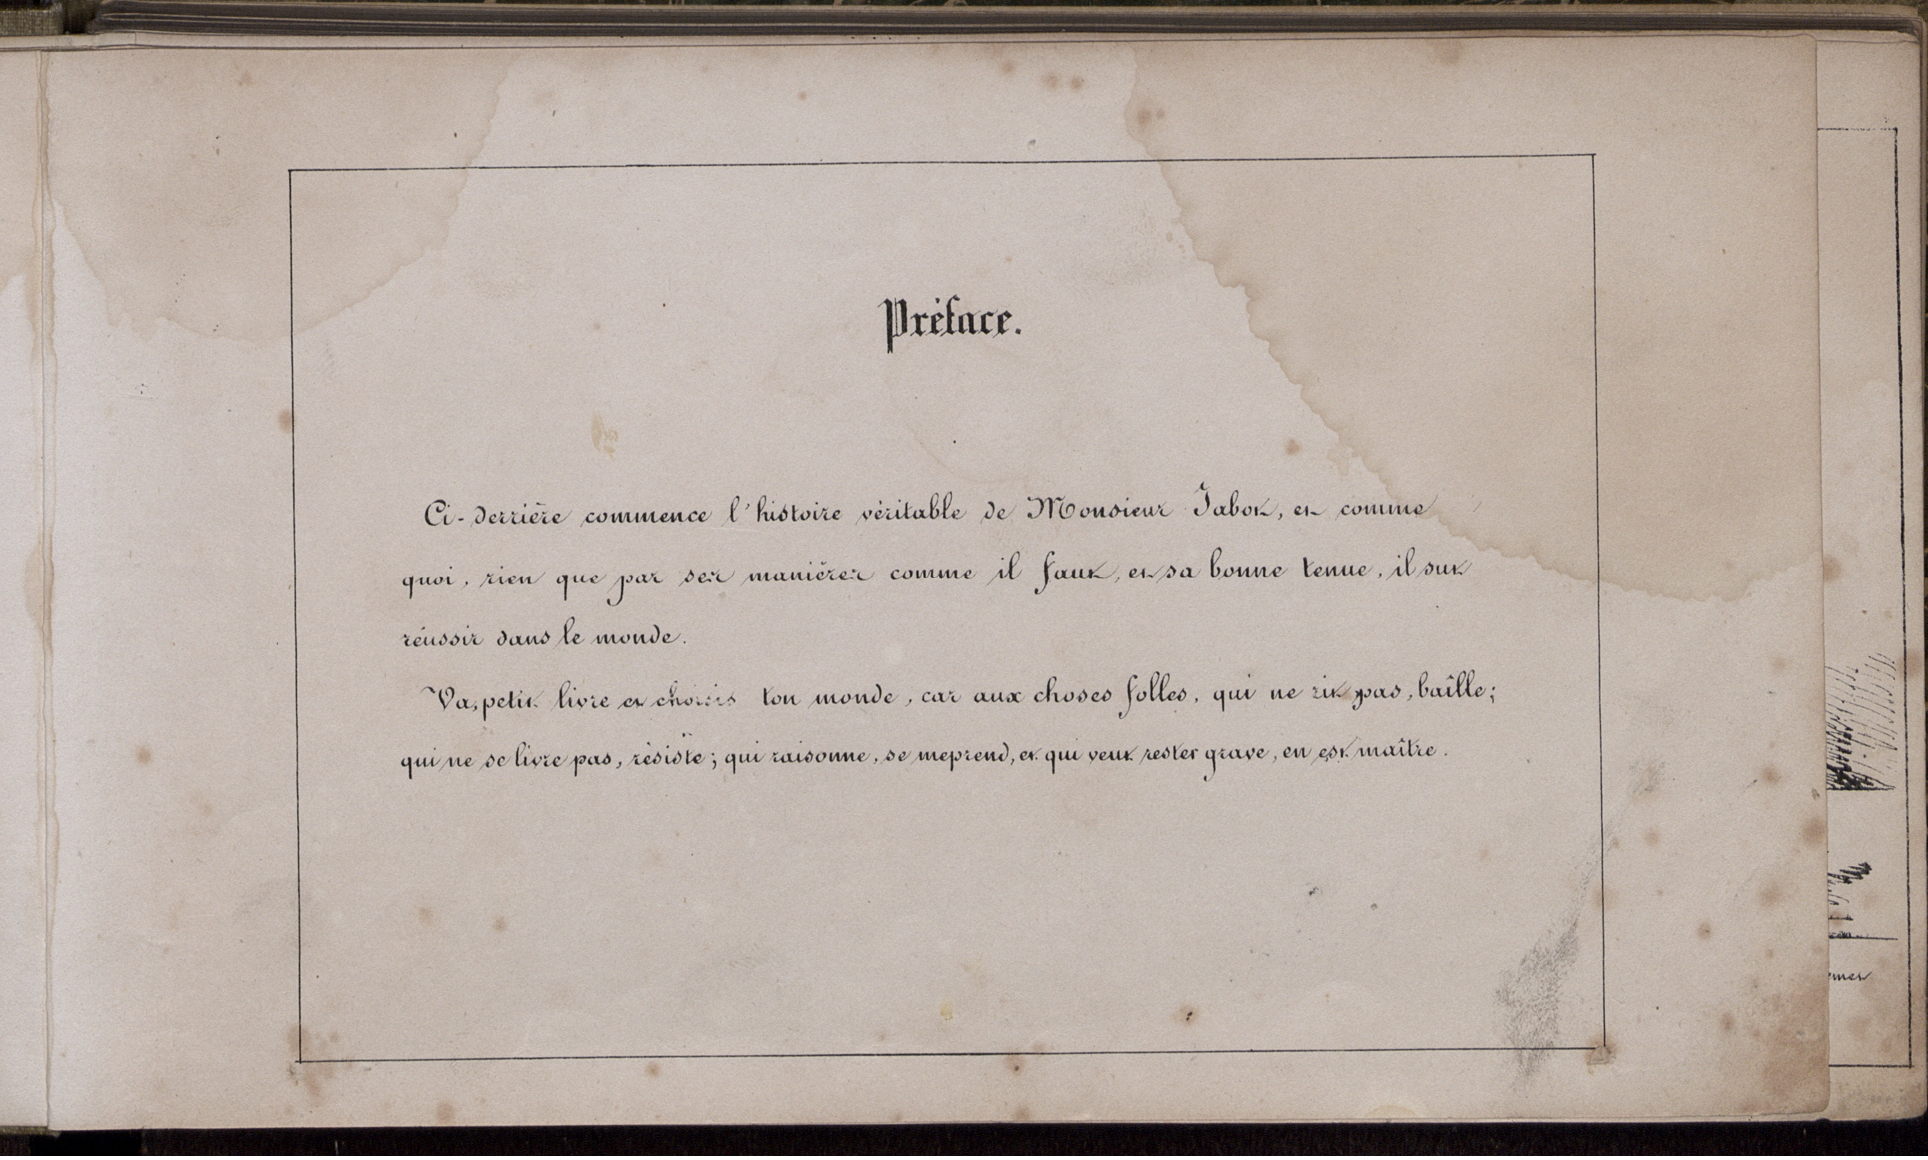 Préface.
Ci-derrière commence l'histoire véritable de Monsieur Jabot, et comme
quoi, rien que par ses manières comme il faut, et sa bonne tenue, il sut
réussir dans le monde.
Va, petit livre et choisis ton monde, car aux choses folles, qui ne rit pas, baîlle;
qui ne se livre pas, résiste; qui raisonne, se meprend, et qui veut rester grave, en est maître.